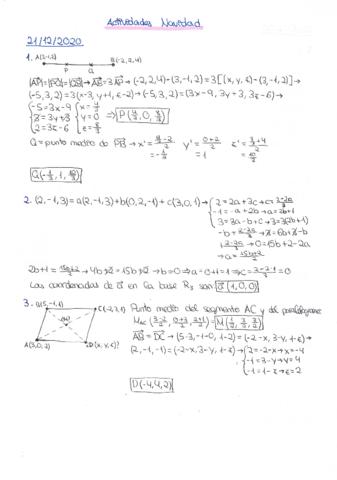 Actividades Navidad
21/12/2020
1. A(3,-1,2) B(-2,2,4)
P Q
|AP|=|PQ|=|QB| → AB=3AP → (-2,2,4)-(3,-1,2)=3[(x,y,z)-(3,-1,2)] →
(-5,3,2)=3(x-3,y+1,z-2) → (-5,3,2)=(3x-9, 3y+3, 3z-6) →
-5=3x-9 x=4/3
3=3y+3 y=0 → P(4/3,0,8/3)
2=3z-6 z=8/3
Q = punto medio de PB → x'= y'=0+2/2 z'=
=-1/3 =1 =10/3
Q(-1/3,1,10/3)
2. (2,-1,3)=a(2,-1,3)+b(0,2,-1)+c(3,0,1) → 2=2a+3c → c=2-2a/3
-1=-a+2b → a=2b+1
3=3a-b+c →
→ 0=15b+2-2a
→ a=15b+2/2
2b+1=15b+2/2 → 4b+2=15b+2 → b=0 → a=0+1=1 → c=2-2·1/3=0
Las coordenadas de en la base son (1,0,0)
3. B(5,-1,1) C(-2,3,1) Punto medio del segmento AC y del paralelogramo:
M_AC(3-2/2, 0+3/2, 2+1/2)=M(1/2,3/2,3/2)
AB=DC → (5-3,-1-0,1-2)=(-2-x,3-y,1-z) →
A(3,0,2) D(x,y,z)? (2,-1,-1)=(-2-x,3-y,1-z) → 2=-2-x → x=-4
-1=3-y → y=4
-1=1-z → z=2
D(-4,4,2)